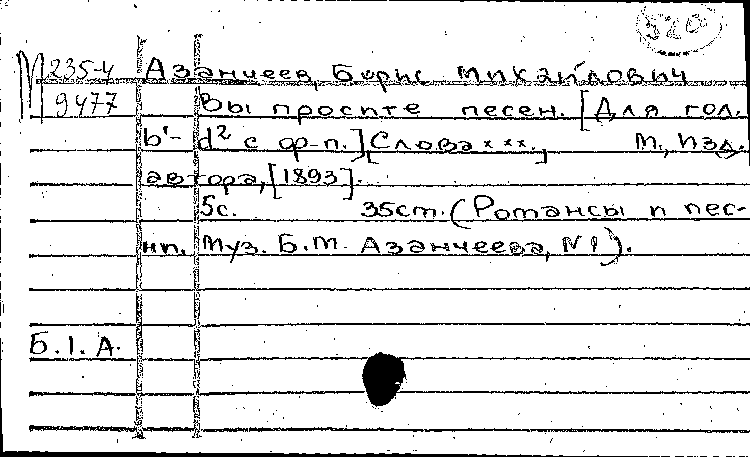 520
М 235-4 Азанчеев, Борис Михайлович
9477 Вы просите песен. [Для гол.
b'- d² с ф-п.] [Слова ххх.] М., Изд.
автора, [1893].
5с. 35см. (Романсы и пес-
ни. Муз. Б.М. Азанчеева, №1).
Б.I.А.